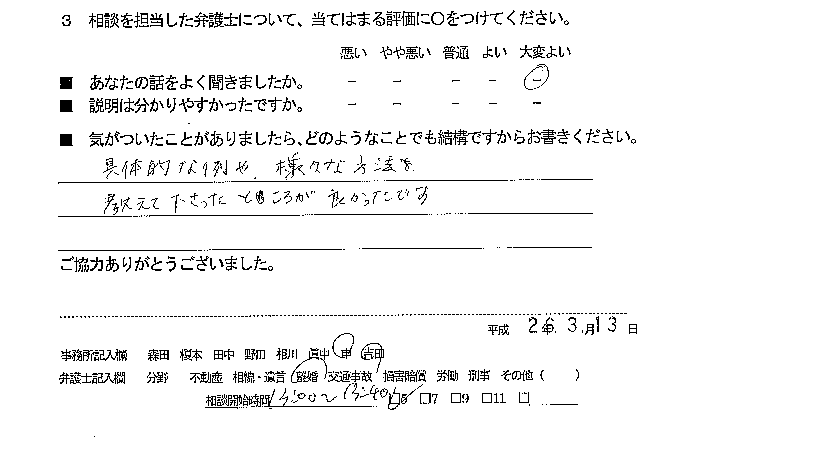 3 相談を担当した弁護士について、当てはまる評価に〇をつけてください。
悪い やや悪い 普通 よい 大変よい
■ あなたの話をよく聞きましたか。 － － － － －
■ 説明は分かりやすかったですか。 － － － － －
■ 気がついたことがありましたら、どのようなことでも結構ですからお書きください。
具体的な例や、様々な方法を
教えて下さったところが良かったです
ご協力ありがとうございました。
平成 26年 3月13日
事務所記入欄 森田 榎本 田中 野田 相川 眞中 申 吉田
弁護士記入欄 分野 不動産 相続・遺言 離婚 交通事故 損害賠償 労働 刑事 その他（ ）
相談開始時間 13:00～13:40 □5 □7 □9 □11 □